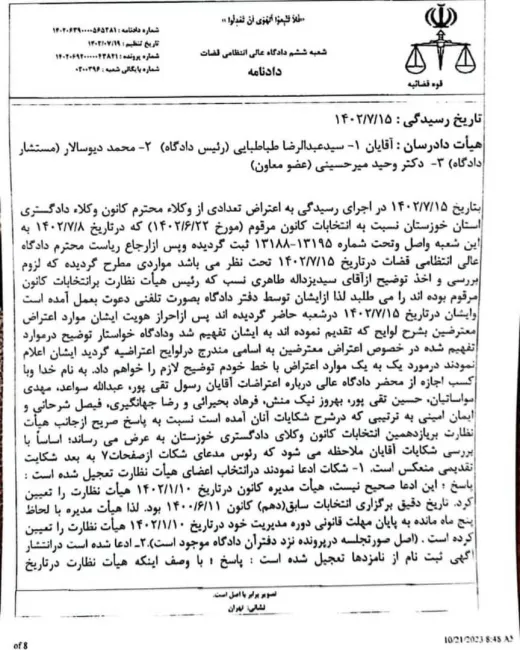 «فلا تتبعوا الهوی ان تعدلوا»
شماره دادنامه: ۱۴۰۲۰۶۳۹۰۰۰۰۵۶۵۲۸۱
تاریخ تنظیم: ۱۴۰۲/۰۷/۱۹
شماره پرونده: ۱۴۰۲۰۶۹۲۰۰۰۰۴۳۸۲۱
شماره بایگانی شعبه: ۰۲۰۰۳۹۶
شعبه ششم دادگاه عالی انتظامی قضات
دادنامه
قوه قضائیه
تاریخ رسیدگی : ۱۴۰۲/۷/۱۵
هیأت دادرسان : آقایان ۱- سیدعبدالرضا طباطبایی (رئیس دادگاه) ۲- محمد دیوسالار (مستشار
دادگاه) ۳- دکتر وحید میرحسینی (عضو معاون)
بتاریخ ۱۴۰۲/۷/۱۵ در اجرای رسیدگی به اعتراض تعدادی از وکلاء محترم کانون وکلاء دادگستری
استان خوزستان نسبت به انتخابات کانون مرقوم (مورخ ۱۴۰۲/۶/۲۲) که درتاریخ ۱۴۰۲/۷/۸ به
این شعبه واصل وتحت شماره ۱۳۱۹۵-۱۳۱۸۸ ثبت گردیده وپس ازارجاع ریاست محترم دادگاه
عالی انتظامی قضات درتاریخ ۱۴۰۲/۷/۱۵ تحت نظر می باشد مواردی مطرح گردیده که لزوم
بررسی و اخذ توضیح ازآقای سیدیزداله طاهری نسب که رئیس هیأت نظارت برانتخابات کانون
مرقوم بوده اند را می طلبد لذا ازایشان توسط دفتر دادگاه بصورت تلفنی دعوت بعمل آمده است
وایشان درتاریخ ۱۴۰۲/۷/۱۵ درشعبه حاضر گردیده اند پس ازاحراز هویت ایشان موارد اعتراض
معترضین بشرح لوایح که تقدیم نموده اند به ایشان تفهیم شد ودادگاه خواستار توضیح درموارد
تفهیم شده در خصوص اعتراض معترضین به اسامی مندرج درلوایح اعتراضیه گردید ایشان اعلام
نمودند درمورد یک به یک موارد اعتراض با خط خودم توضیح لازم را خواهم داد. به نام خدا وبا
کسب اجازه از محضر دادگاه عالی درباره اعتراضات آقایان رسول تقی پور، عبدالله سواعد، مهدی
مواساتیان، حسین تقی پور، بهروز نیک منش، فرهاد بحیرائی و رضا جهانگیری، فیصل شرحانی و
ایمان امینی به ترتیبی که درشرح شکایات آنان آمده است نسبت به پاسخ صریح ازجانب هیأت
نظارت بریازدهمین انتخابات کانون وکلای دادگستری خوزستان به عرض می رساند؛ اساساً با
بررسی شکایات آقایان ملاحظه می شود که رئوس مدعای شکات ازصفحات۷ به بعد شکایت
تقدیمی منعکس است. ۱- شکات ادعا نمودند درانتخاب اعضای هیأت نظارت تعجیل شده است :
پاسخ ؛ این ادعا صحیح نیست، هیأت مدیره کانون درتاریخ ۱۴۰۲/۱/۱۰ هیأت نظارت را تعیین
کرد. تاریخ دقیق برگزاری انتخابات سابق(دهم) کانون ۱۴۰۰/۶/۱۱ بود. لذا هیأت مدیره با لحاظ
پنج ماه مانده به پایان مهلت قانونی دوره مدیریت خود درتاریخ ۱۴۰۲/۱/۱۰ هیأت نظارت را تعیین
کرده است . (اصل صورتجلسه درپرونده نزد دفترآن دادگاه موجود است).۲- ادعا شده است درانتشار
آگهی ثبت نام از نامزدها تعجیل شده است : پاسخ ؛ با وصف اینکه هیأت نظارت درتاریخ
تصویر برابر با اصل است.
نشانی: تهران
of 8
10/21/2023 8:48 A